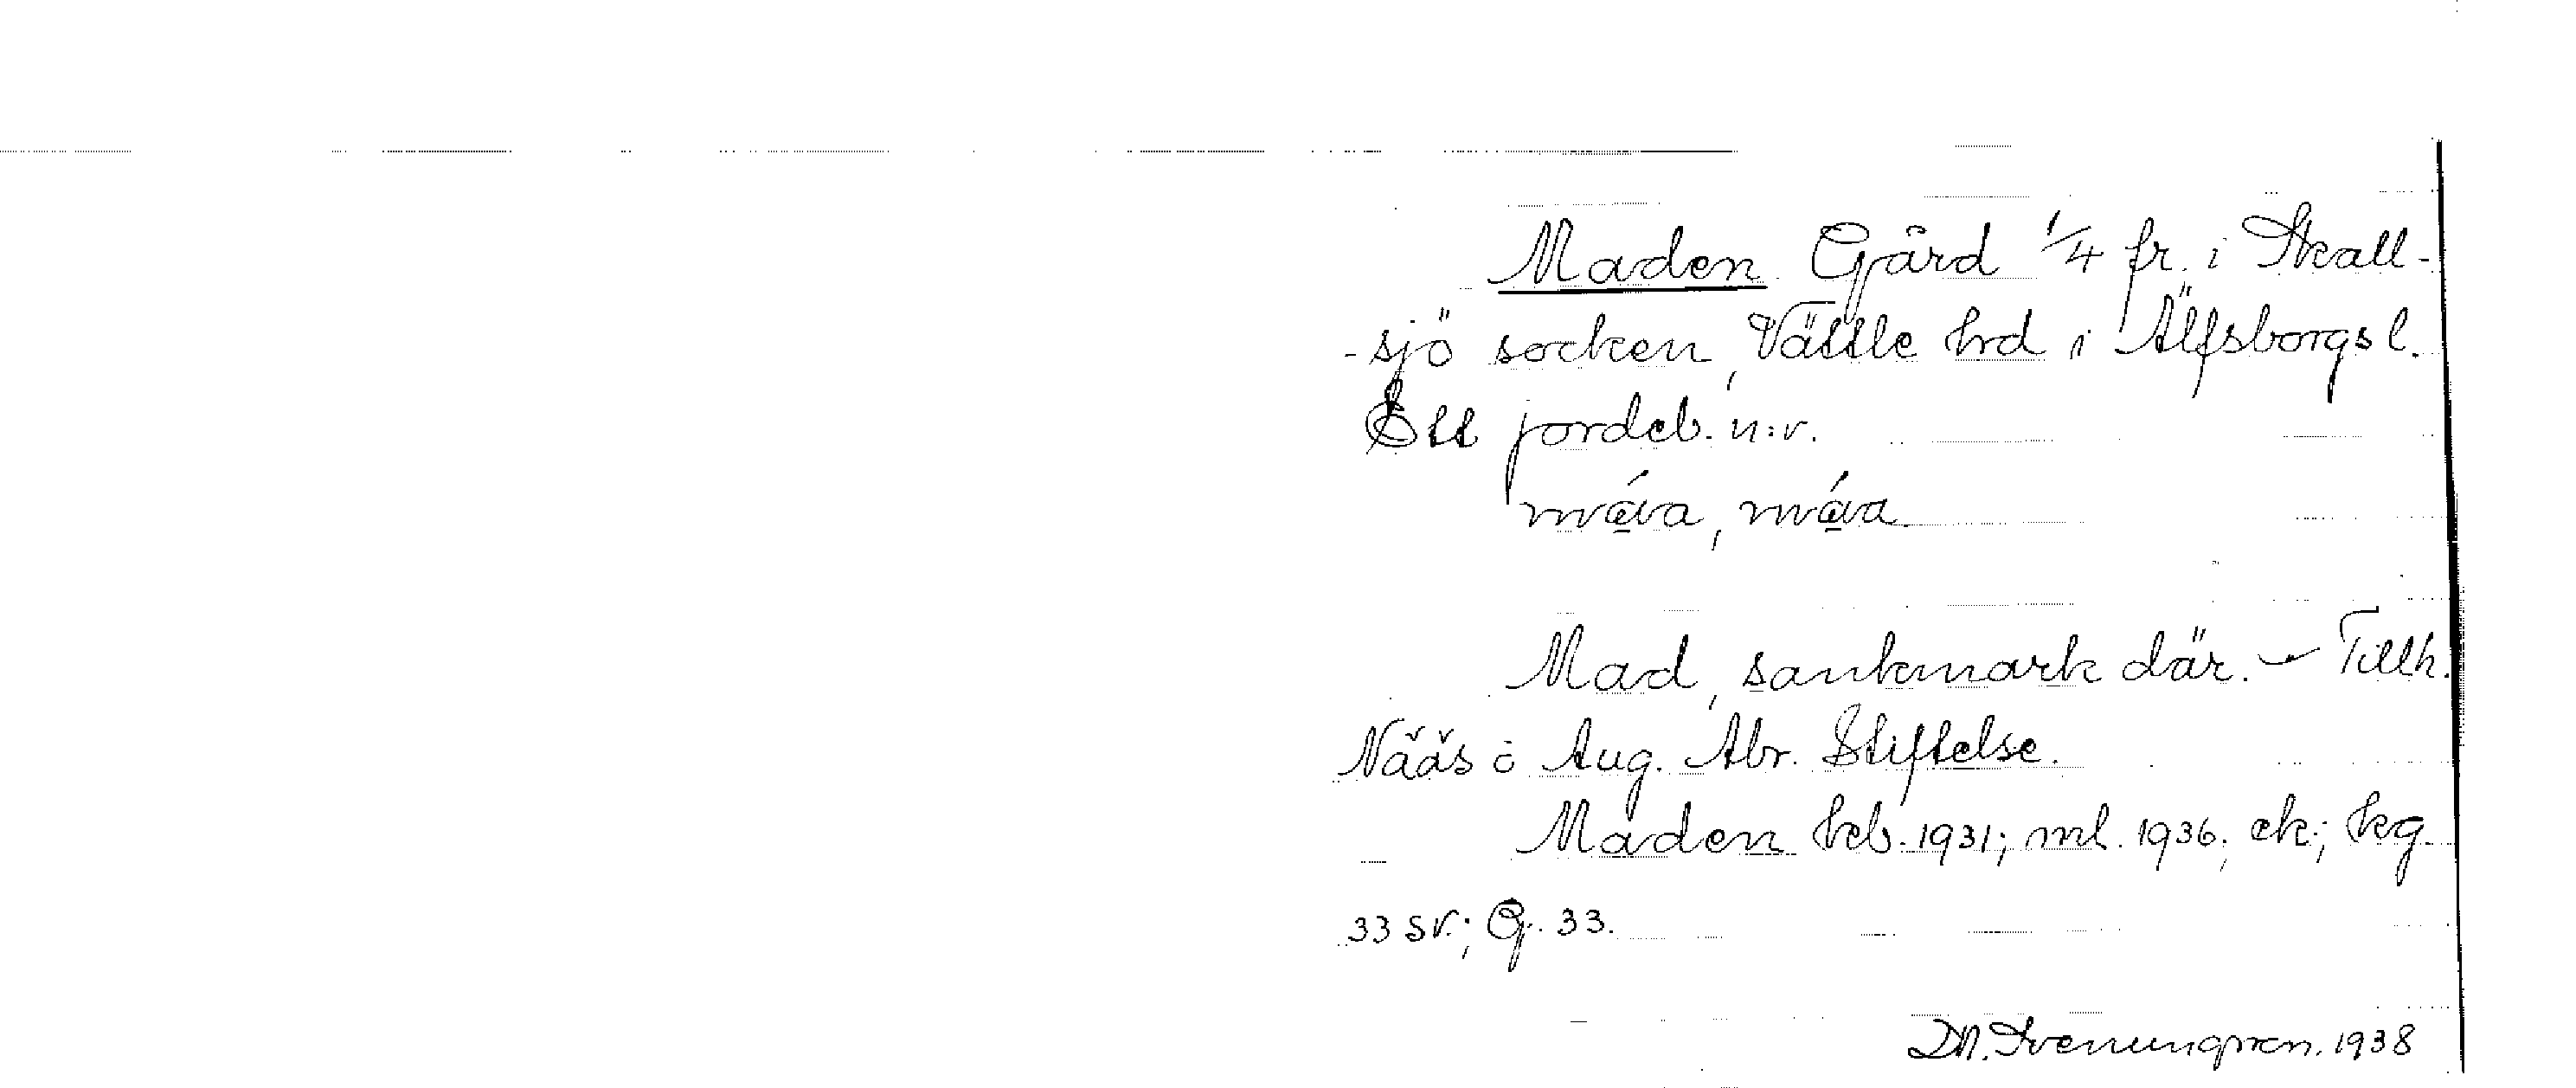 Maden Gård 1/4 fr. i Skall-
-sjö socken, Vättle hrd i Älfsborgs l.
Ett jordeb. n:r.
Mad, sankmark där. – Tillh.
Nääs o Aug. Abr. Stiftelse.
Maden hcb. 1931; ml. 1936; ek; kg.
33 sv.; Gj. 33.
D.N. Svenungsson. 1938